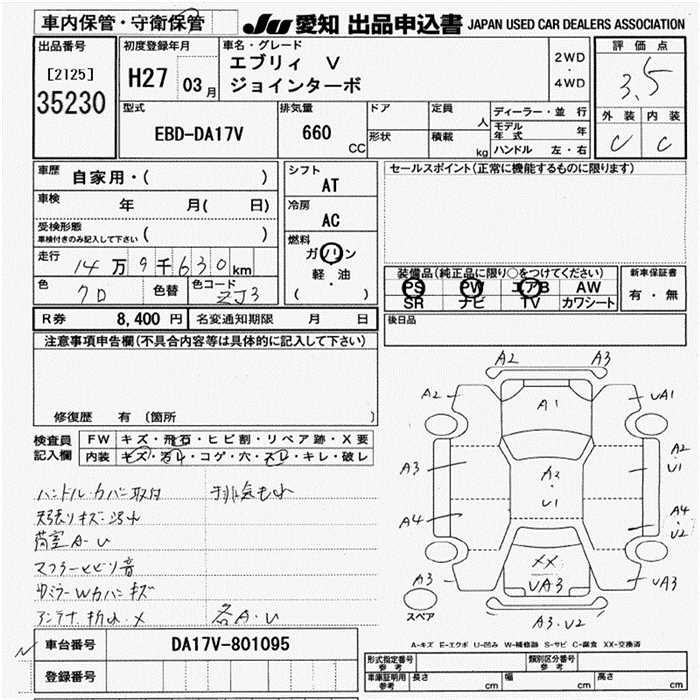 車内保管・守衛保管
JU 愛知 出品申込書 JAPAN USED CAR DEALERS ASSOCIATION
出品番号
[2125]
35230
初度登録年月
H27 03月
車名・グレード
エブリィ V
ジョインターボ
2WD
・
4WD
評価点
3.5
外装 内装
C C
型式
EBD-DA17V
排気量
660
CC
ドア
形状
定員
人
積載
kg
ディーラー・並行
モデル年式 年
ハンドル 左・右
車歴 自家用・( )
車検 年 月( 日)
受検形態
車検付きのみ記入して下さい ( )
走行 14万9千630km
色 7D 色替 色コード ZJ3
シフト
AT
冷房
AC
燃料
ガソリン
軽・油
( )
セールスポイント(正常に機能するものに限ります)
装備品(純正品に限り○をつけてください)
PS PW エアB AW
SR ナビ TV カワシート
新車保証書
有・無
R券 8,400円 名変通知期限 月 日
後日品
注意事項申告欄(不具合内容等は具体的に記入して下さい)
修復歴 有 〔箇所
検査員
記入欄
FW キズ・飛石・ヒビ割・リペア跡・X要
内装 キズ・汚れ・コゲ・穴・スレ・キレ・破レ
ハンドルカバー取付 排気もれ
天張りキズ・汚れ
荷室A-U
マフラービビリ音
ミラーWカバーキズ
アンテナ折れ・X 各A・U
A2 A3
A2 A1 UA1
A3 A2 A2
・ ・
U1 U1
A4 A4
・
U2
XX
A3 UA3 UA3
スペア A3・U2
A-キズ E-エクボ U-凹み W-補修跡 S-サビ C-腐食 XX-交換済
車台番号 DA17V-801095
登録番号
形式指定番号
参考
類別区分番号
参考
車庫証明用
参考
長さ cm 幅 cm 高さ cm